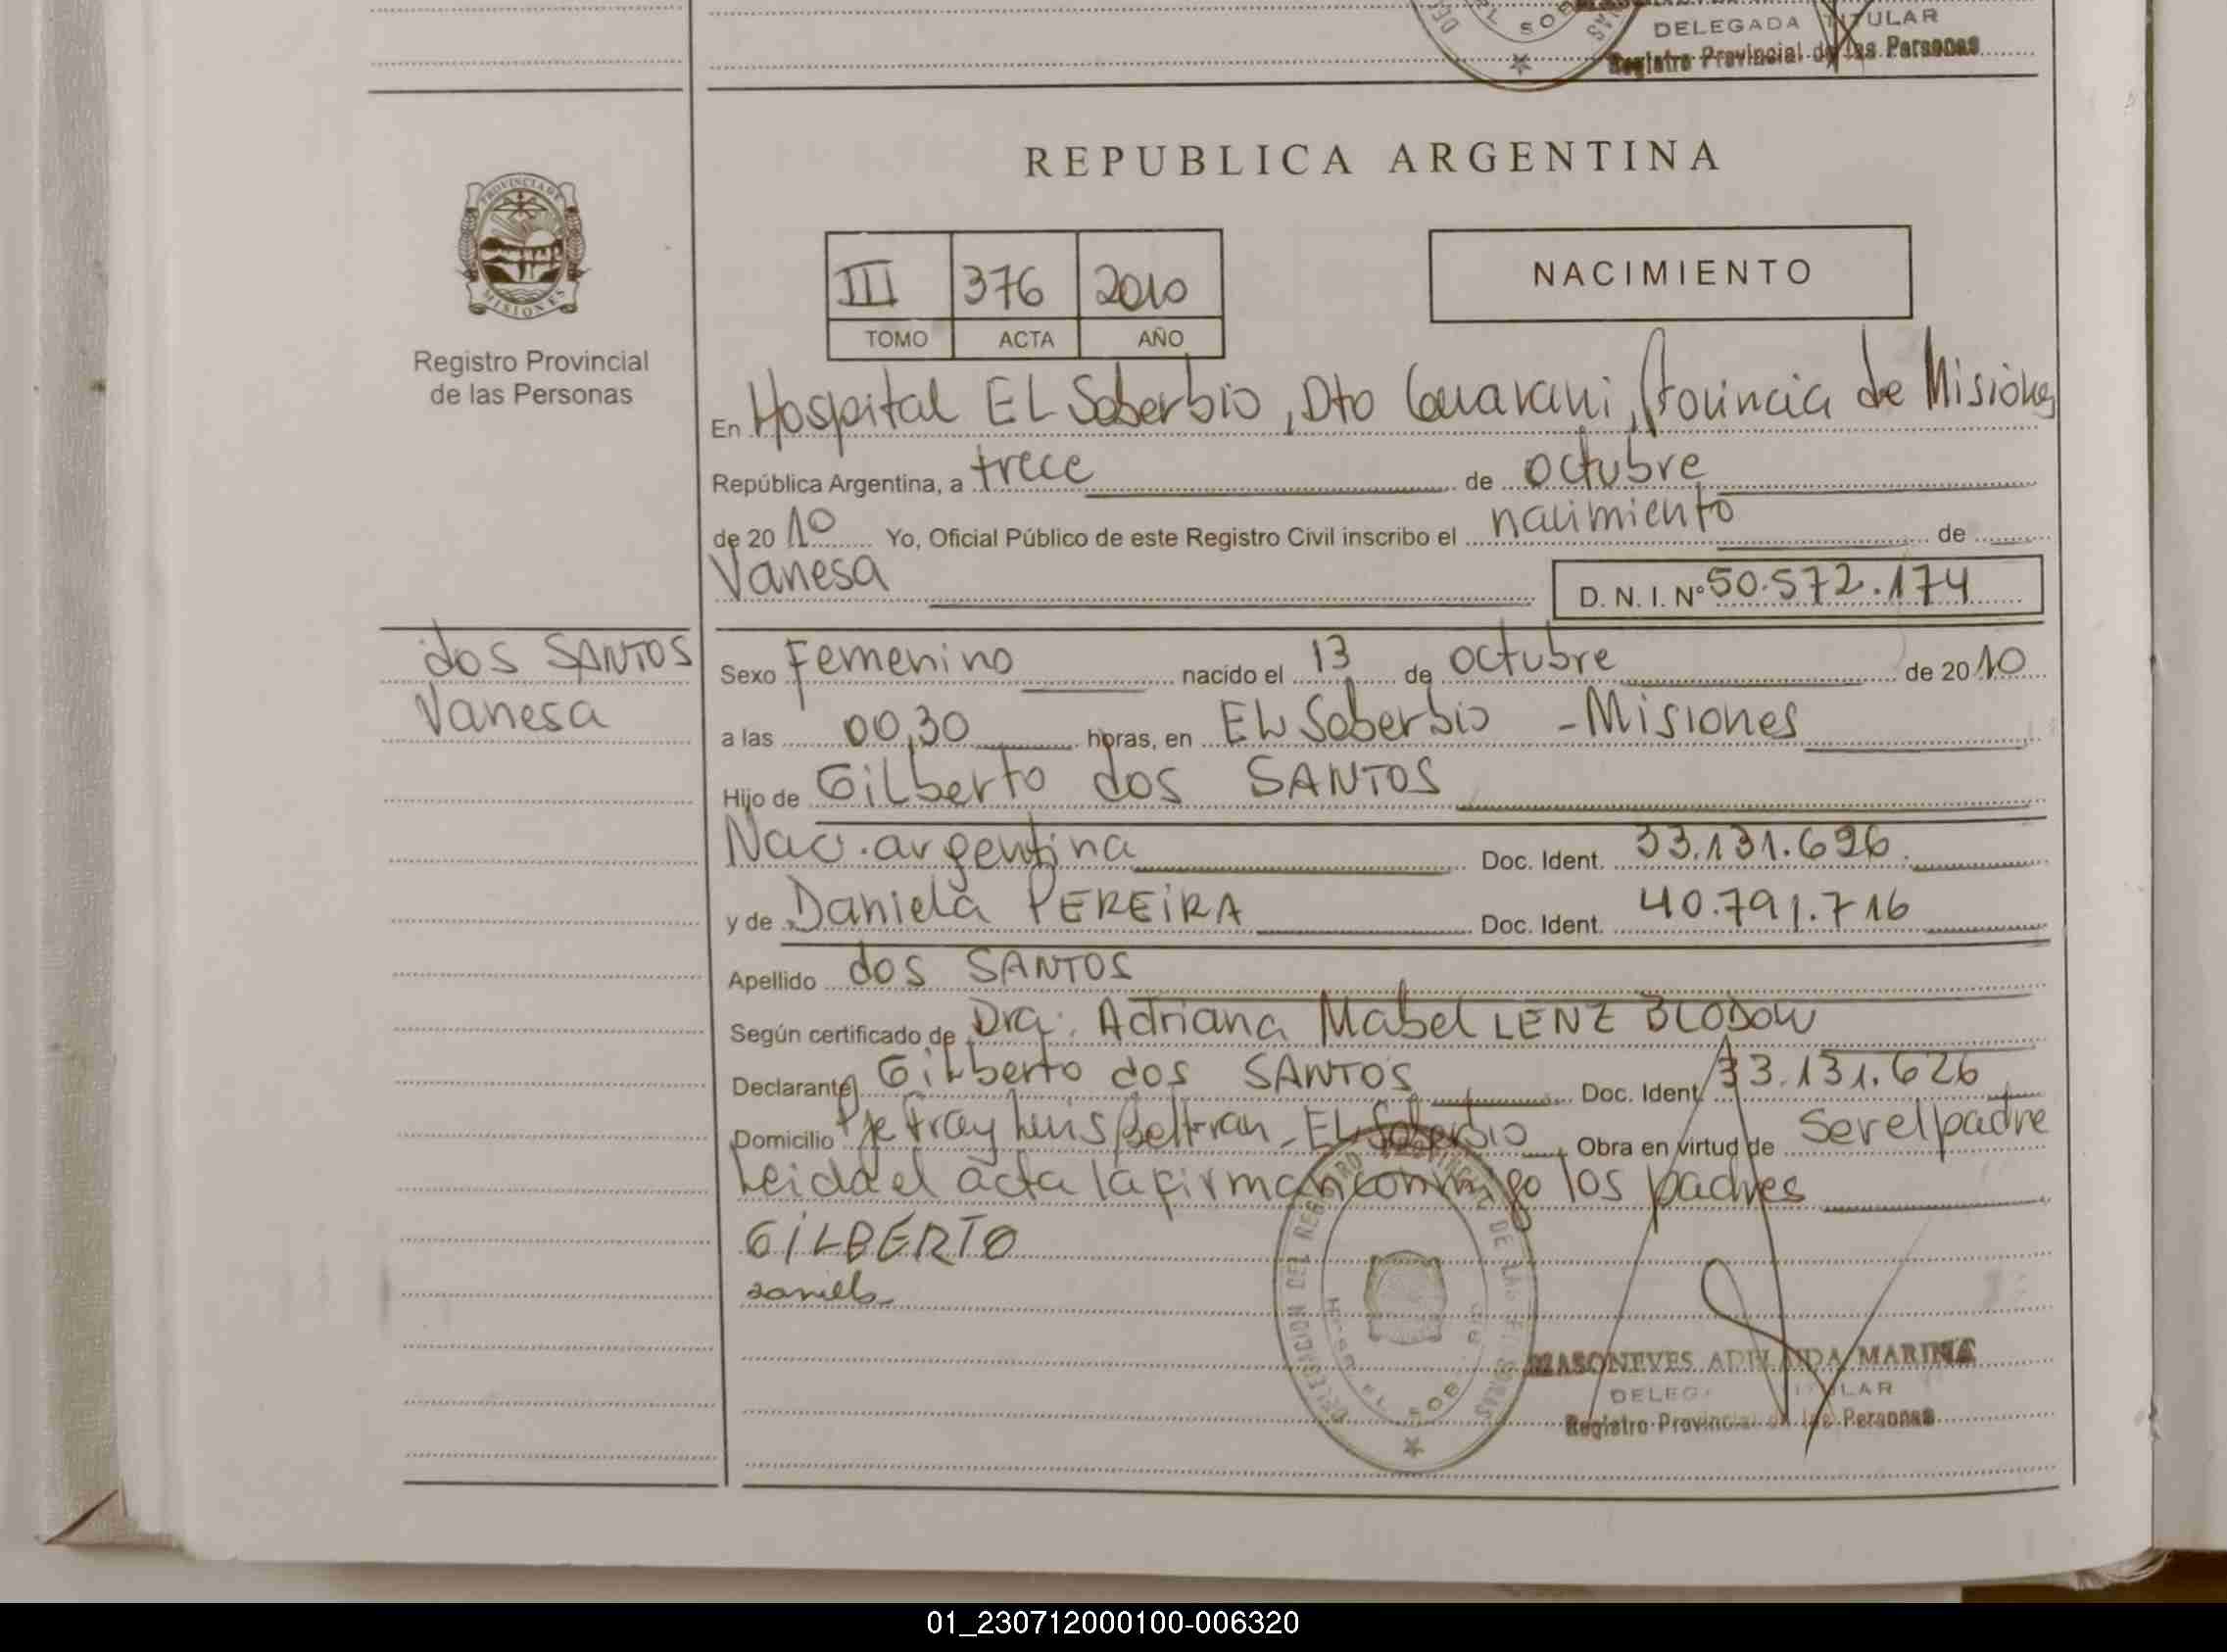 DELEGADA TITULAR
Registro Provincial de las Personas
REPUBLICA ARGENTINA
PROVINCIA DE
MISIONES
Registro Provincial
de las Personas
III 376 2010
TOMO ACTA AÑO
NACIMIENTO
En Hospital EL Soberbio, Dto Guarani, Provincia de Misiones
República Argentina, a trece de octubre
de 2010 Yo, Oficial Público de este Registro Civil inscribo el nacimiento de
Vanesa D. N. I. Nº 50.572.174
dos SANTOS
Vanesa
Sexo Femenino nacido el 13 de octubre de 2010
a las 00,30 horas, en EL Soberbio - Misiones
Hijo de Gilberto dos SANTOS
Nac. argentina Doc. Ident. 33.131.626
y de Daniela PEREIRA Doc. Ident. 40.791.716
Apellido dos SANTOS
Según certificado de Dra. Adriana Mabel LENZ BLODOW
Declarante Gilberto dos SANTOS Doc. Ident. 33.131.626
Domicilio Pje Fray Luis Beltran - EL Soberbio Obra en virtud de Ser el padre
Leida el acta la firman conmigo los padres
GILBERTO
Daniela
DELEGACION DEL REGISTRO PROVINCIAL DE LAS PERSONAS
MASONEVES ADELAIDA MARINA
DELEGADA TITULAR
Registro Provincial de las Personas
01_230712000100-006320